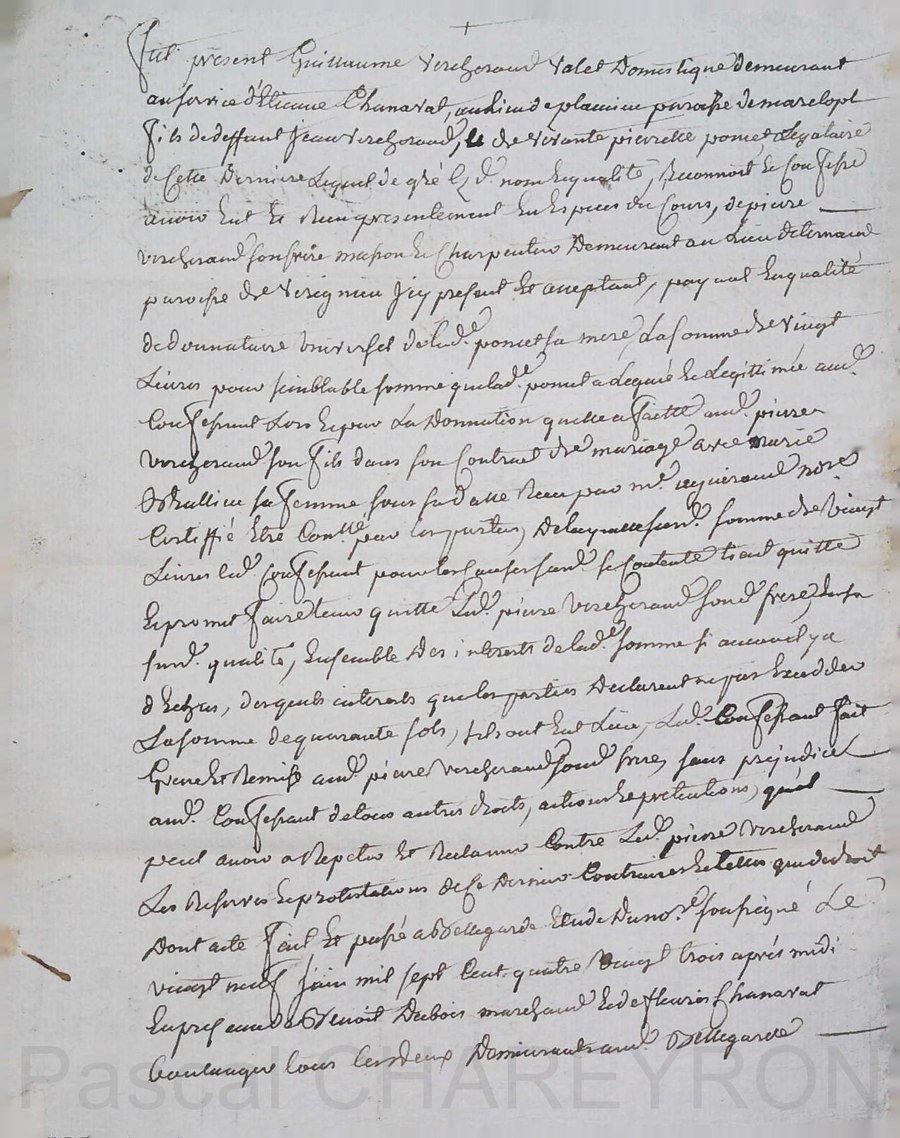 Fut présent Guillaume Vercherand Valet Domestique demeurant
au service d'Etienne Chanavat, au Lieu de plamieu paroisse de marclopt
fils de deffunt Jean Vercherand, & de Vivante pierrette poncet Legataire
de Cette Derniere Lequel de gré Es d. nom & qualité, Reconnoit & Confesse
avoir Eut & Reçu presentement En Especes du Cours, de pierre
Vercherand son frere masson & Charpentier Demeurant au Lieu de
paroisse de Virigneu Icy present Et acceptant, payant En qualité
de donnataire universel de lad.e poncet sa mere, La somme de vingt
Livres pour semblable somme que lad.e poncet a Legué & Legittimée aud.
Confessant Lors & par La Donnation quelle a faitte aud. pierre
Vercherand son fils dans son Contract de mariage avec marie
sa femme sous sa datte Reçu par m.e not.e
Certiffié Etre Contllé par les parties, De laquelle susd. somme de Vingt
Livres led. Confessant pour les Causes susd. se Contente tient quitte
& promet faire tenir quitte Led. pierre Vercherand sond. frere, En sa
susd. qualité, Ensemble Des interests de lad.e somme si aucun il y a
d'Echus, desquels interests que les parties Declarent ne pas Exceder
La somme de quarante sols, sils ont Eut Lieu, Led. Confessant fait
Grace Et Remise aud. pierre Vercherand sond. frere, sans prejudice
aud. Confessant de tous autres droits, actions & pretentions, qu'il
peut avoir a Repeter Et Reclamer Contre Led. pierre Vercherand
Les Reserves & protestations de Ce Dernier Contraires & telles que de droit
Dont acte fait Et passé a Bellegarde Etude Du no.re soussigné Le
vingt neuf juin mil sept Cent quatre Vingt trois après midi
En presence de Benoit Dubois marchand & de fleurie Chanavat
boulanger tous les deux Demeurants aud. Bellegarde
Pascal CHAREYRON